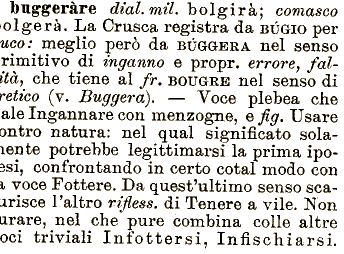 buggeràre dial. mil. bolgirà; comasco
bolgerà. La Crusca registra da BÚGIO per
buco: meglio però da BÚGGERA nel senso
primitivo di inganno e propr. errore, fal-
sità, che tiene al fr. BOUGRE nel senso di
eretico (v. Buggera). — Voce plebea che
vale Ingannare con menzogne, e fig. Usare
contro natura: nel qual significato sola-
mente potrebbe legittimarsi la prima ipo-
tesi, confrontando in certo cotal modo con
la voce Fottere. Da quest'ultimo senso sca-
turisce l'altro rifless. di Tenere a vile. Non
curare, nel che pure combina colle altre
voci triviali Infottersi, Infischiarsi.